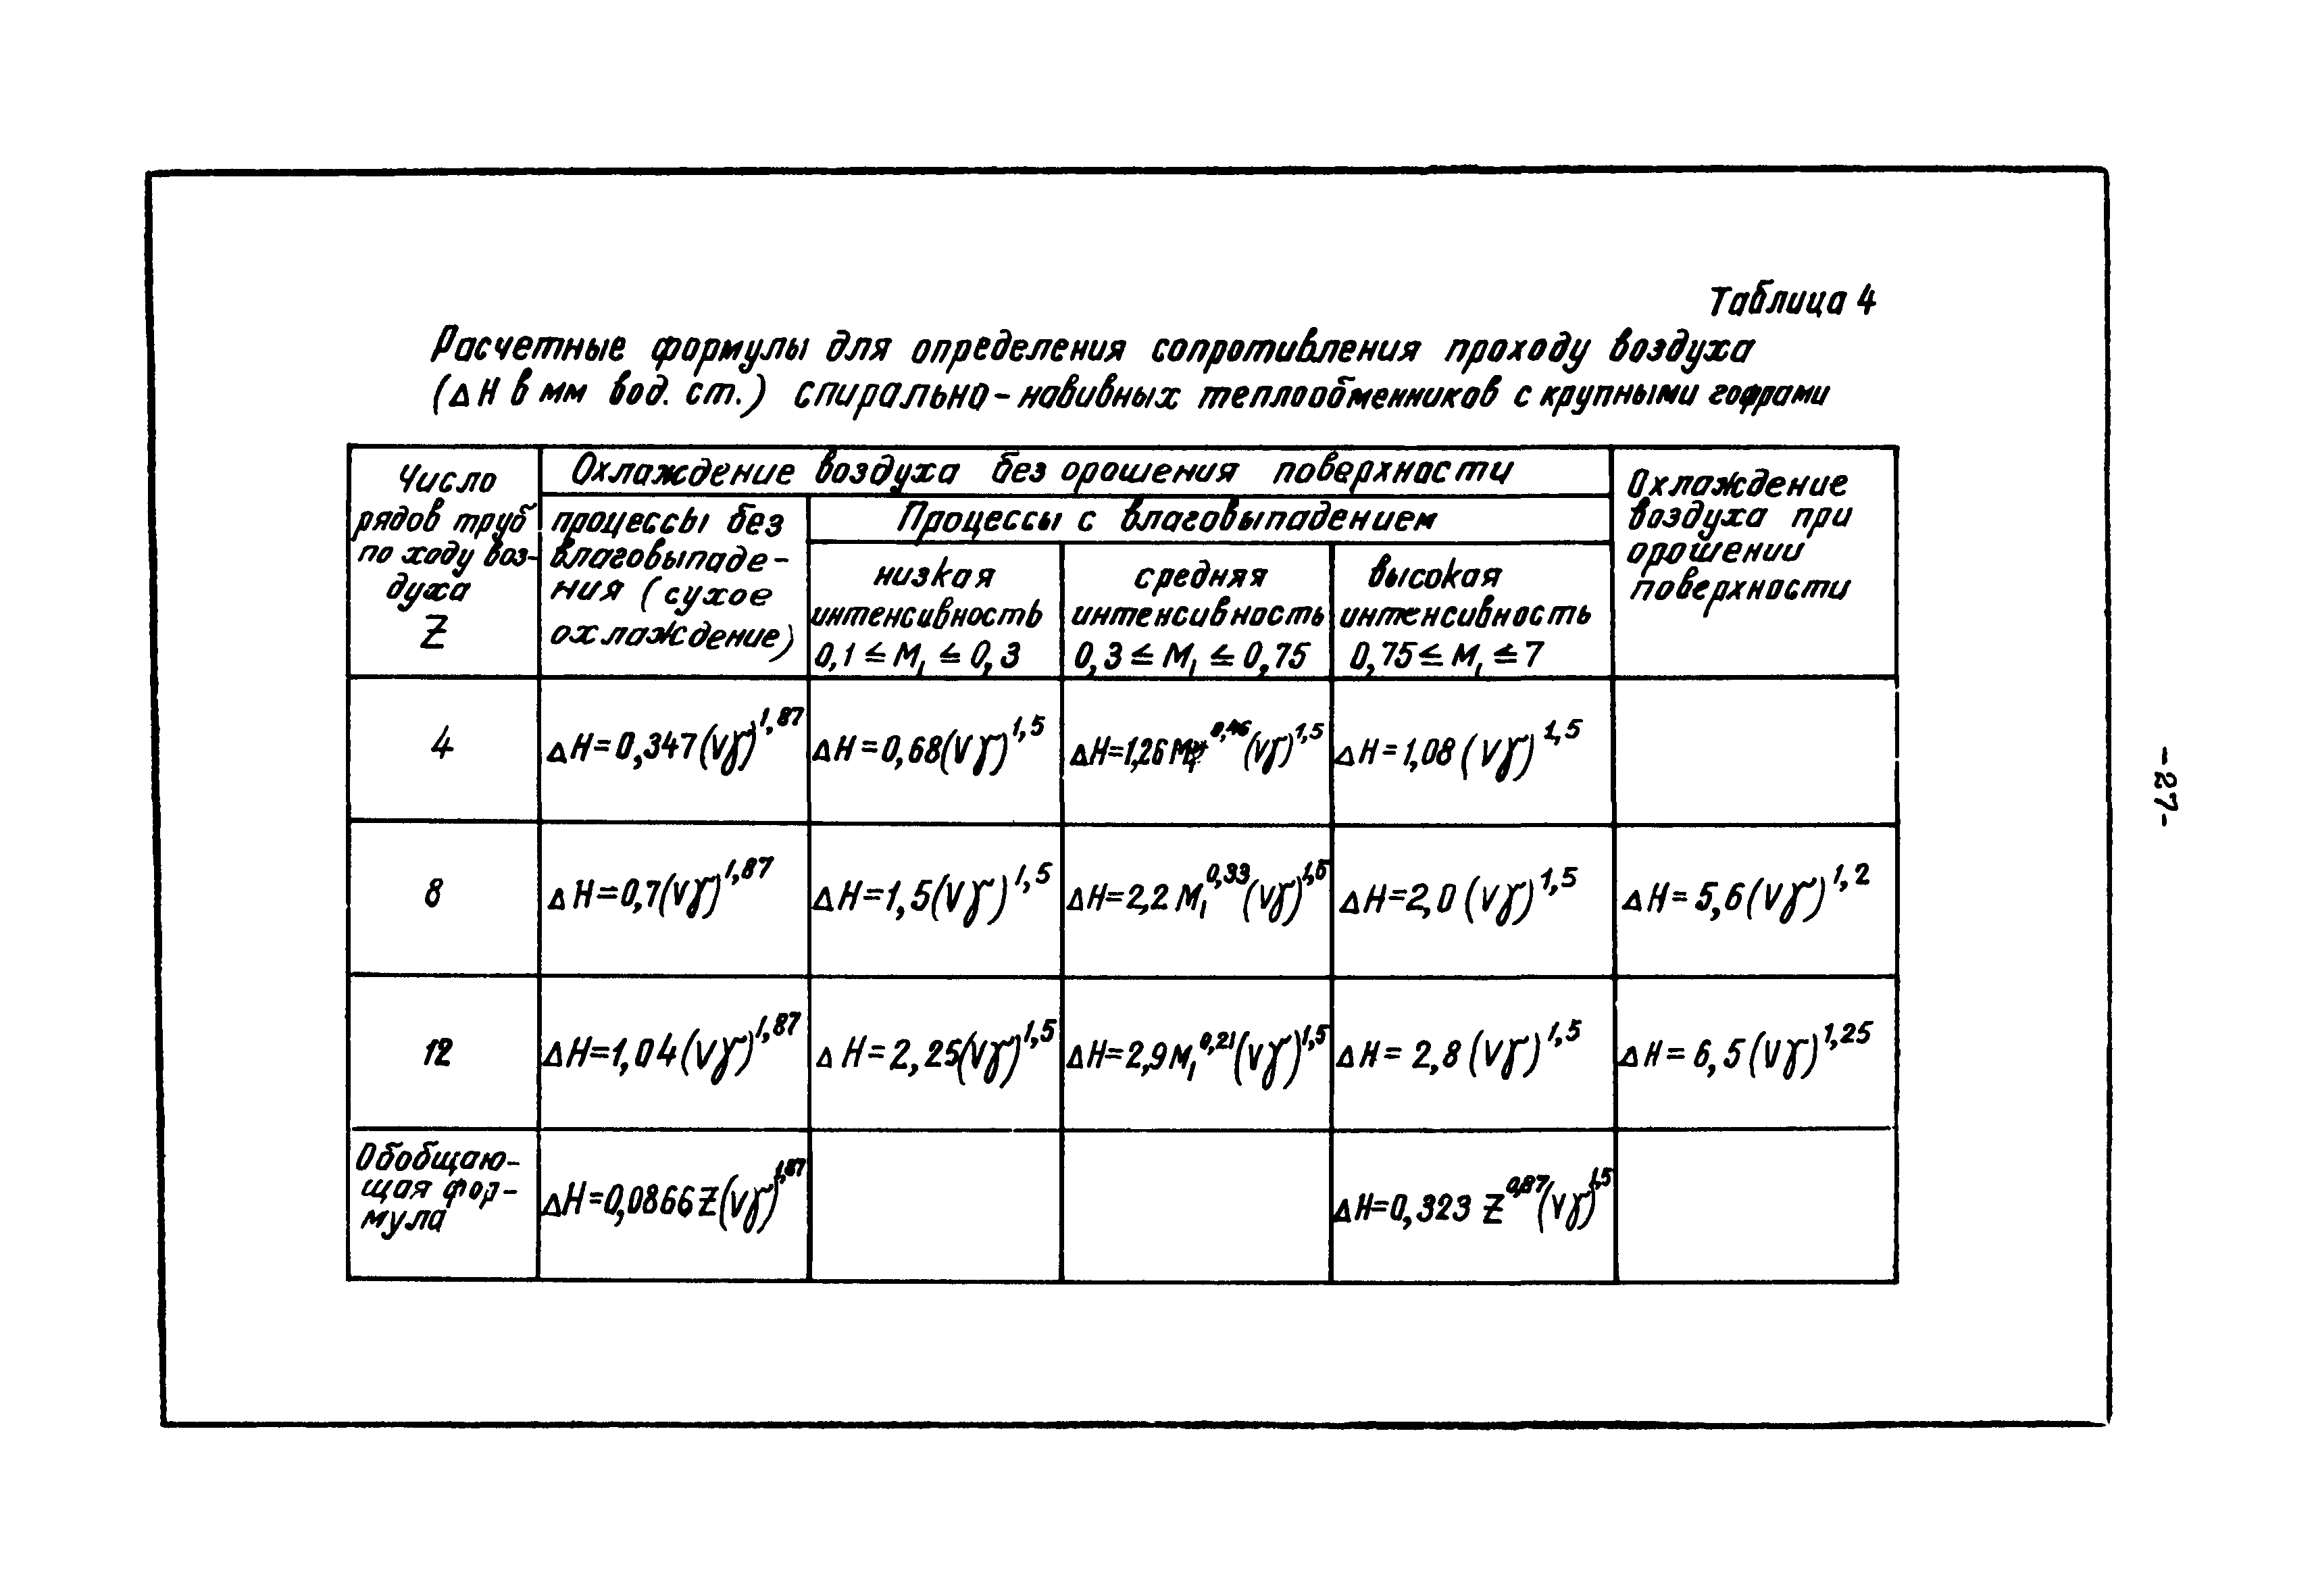 Таблица 4
Расчетные формулы для определения сопротивления проходу воздуха
(ΔH в мм вод. ст.) спирально-навивных теплообменников с крупными гофрами
Число
рядов труб
по ходу воз-
духа
Z
Охлаждение воздуха без орошения поверхности
процессы без
влаговыпаде-
ния (сухое
охлаждение)
Процессы с влаговыпадением
низкая
интенсивность
0,1 ≤ M₁ ≤ 0,3
средняя
интенсивность
0,3 ≤ M₁ ≤ 0,75
высокая
интенсивность
0,75 ≤ M₁ ≤ 7
Охлаждение
воздуха при
орошении
поверхности
4
ΔH=0,347(Vγ)^1,87
ΔH=0,68(Vγ)^1,5
ΔH=1,26 M₁^0,46 (Vγ)^1,5
ΔH=1,08 (Vγ)^1,5
8
ΔH=0,7(Vγ)^1,87
ΔH=1,5(Vγ)^1,5
ΔH=2,2 M₁^0,33 (Vγ)^1,5
ΔH=2,0 (Vγ)^1,5
ΔH=5,6(Vγ)^1,2
12
ΔH=1,04(Vγ)^1,87
ΔH=2,25(Vγ)^1,5
ΔH=2,9 M₁^0,21 (Vγ)^1,5
ΔH=2,8 (Vγ)^1,5
ΔH=6,5(Vγ)^1,25
Обобщаю-
щая фор-
мула
ΔH=0,0866 Z(Vγ)^1,87
ΔH=0,323 Z^0,87 (Vγ)^1,5
-27-